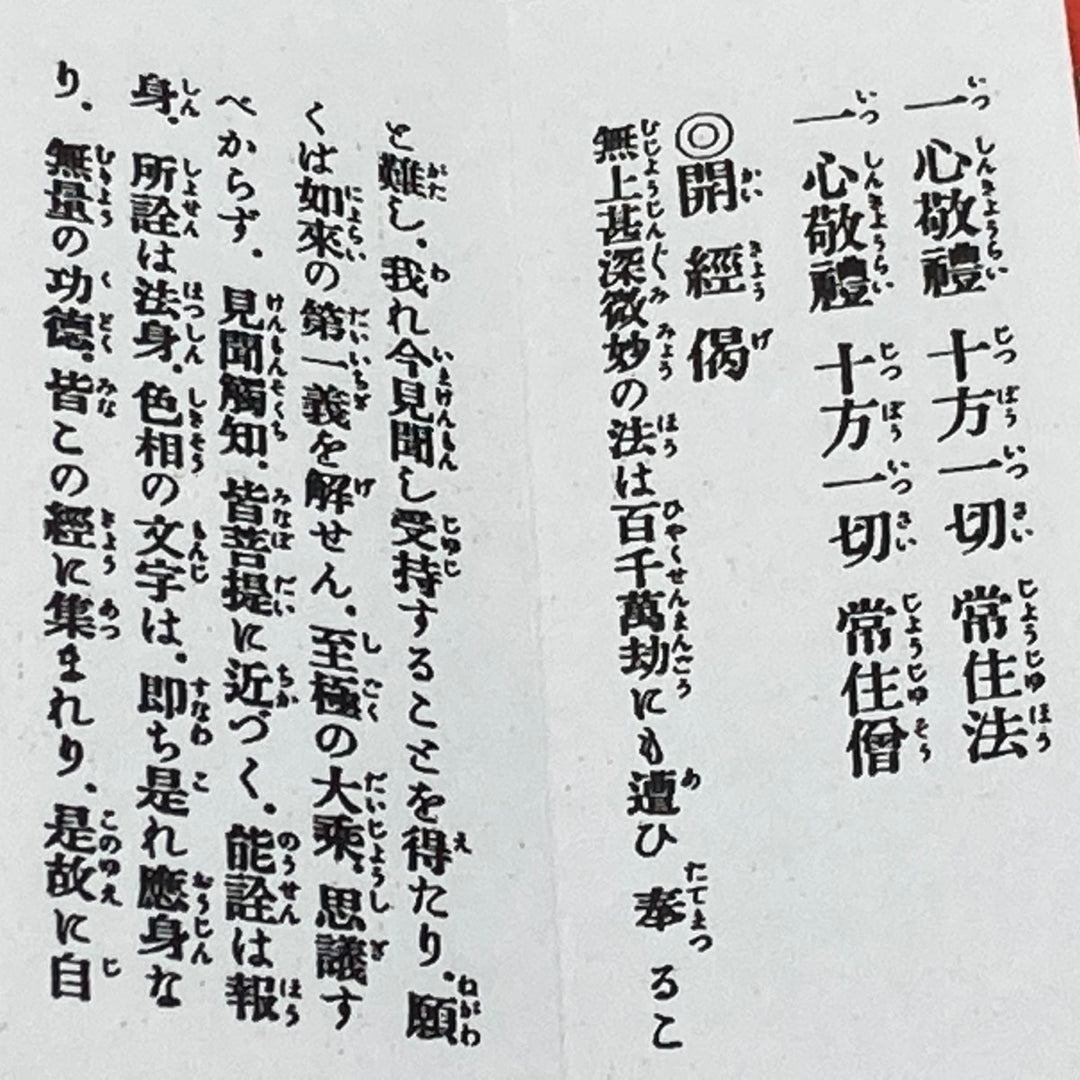 一心敬禮 十方一切 常住法
一心敬禮 十方一切 常住僧
◎開經偈
無上甚深微妙の法は百千萬劫にも遭ひ奉るこ
と難し、我れ今見聞し受持することを得たり、願
くは如來の第一義を解せん、至極の大乘、思議す
べからず、見聞觸知、皆菩提に近づく、能詮は報
身、所詮は法身、色相の文字は、即ち是れ應身な
り、無量の功德、皆この經に集まれり、是故に自